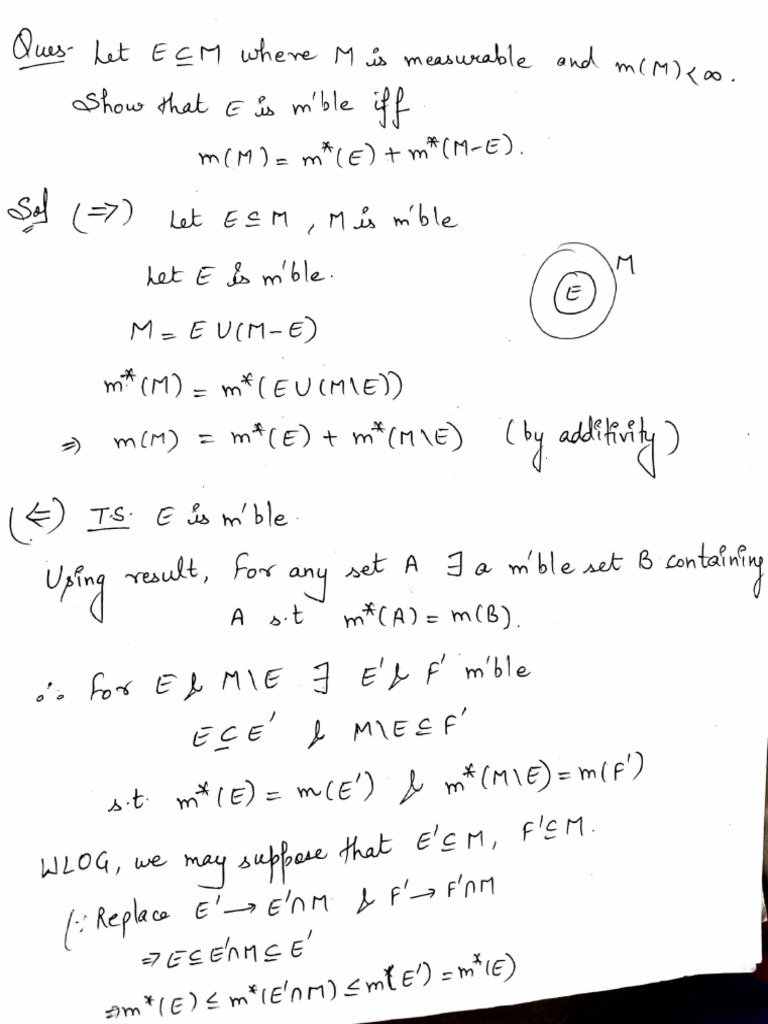 Ques- Let E ⊆ M where M is measurable and m(M) < ∞.
Show that E is m'ble iff
m(M) = m*(E) + m*(M-E).
Sol (⇒) Let E ⊆ M, M is m'ble
Let E is m'ble.
M
E
M = E ∪ (M-E)
m*(M) = m*(E ∪ (M\E))
⇒ m(M) = m*(E) + m*(M\E) (by additivity)
(⇐) T.S. E is m'ble.
Using result, For any set A ∃ a m'ble set B containing
A s.t m*(A) = m(B).
∴ For E & M\E ∃ E' & F' m'ble
E ⊆ E' & M\E ⊆ F'
s.t. m*(E) = m(E') & m*(M\E) = m(F')
WLOG, we may suppose that E' ⊆ M, F' ⊆ M.
(∵ Replace E' → E'∩M & F' → F'∩M
⇒ E ⊆ E'∩M ⊆ E'
⇒ m*(E) ≤ m*(E'∩M) ≤ m*(E') = m*(E)